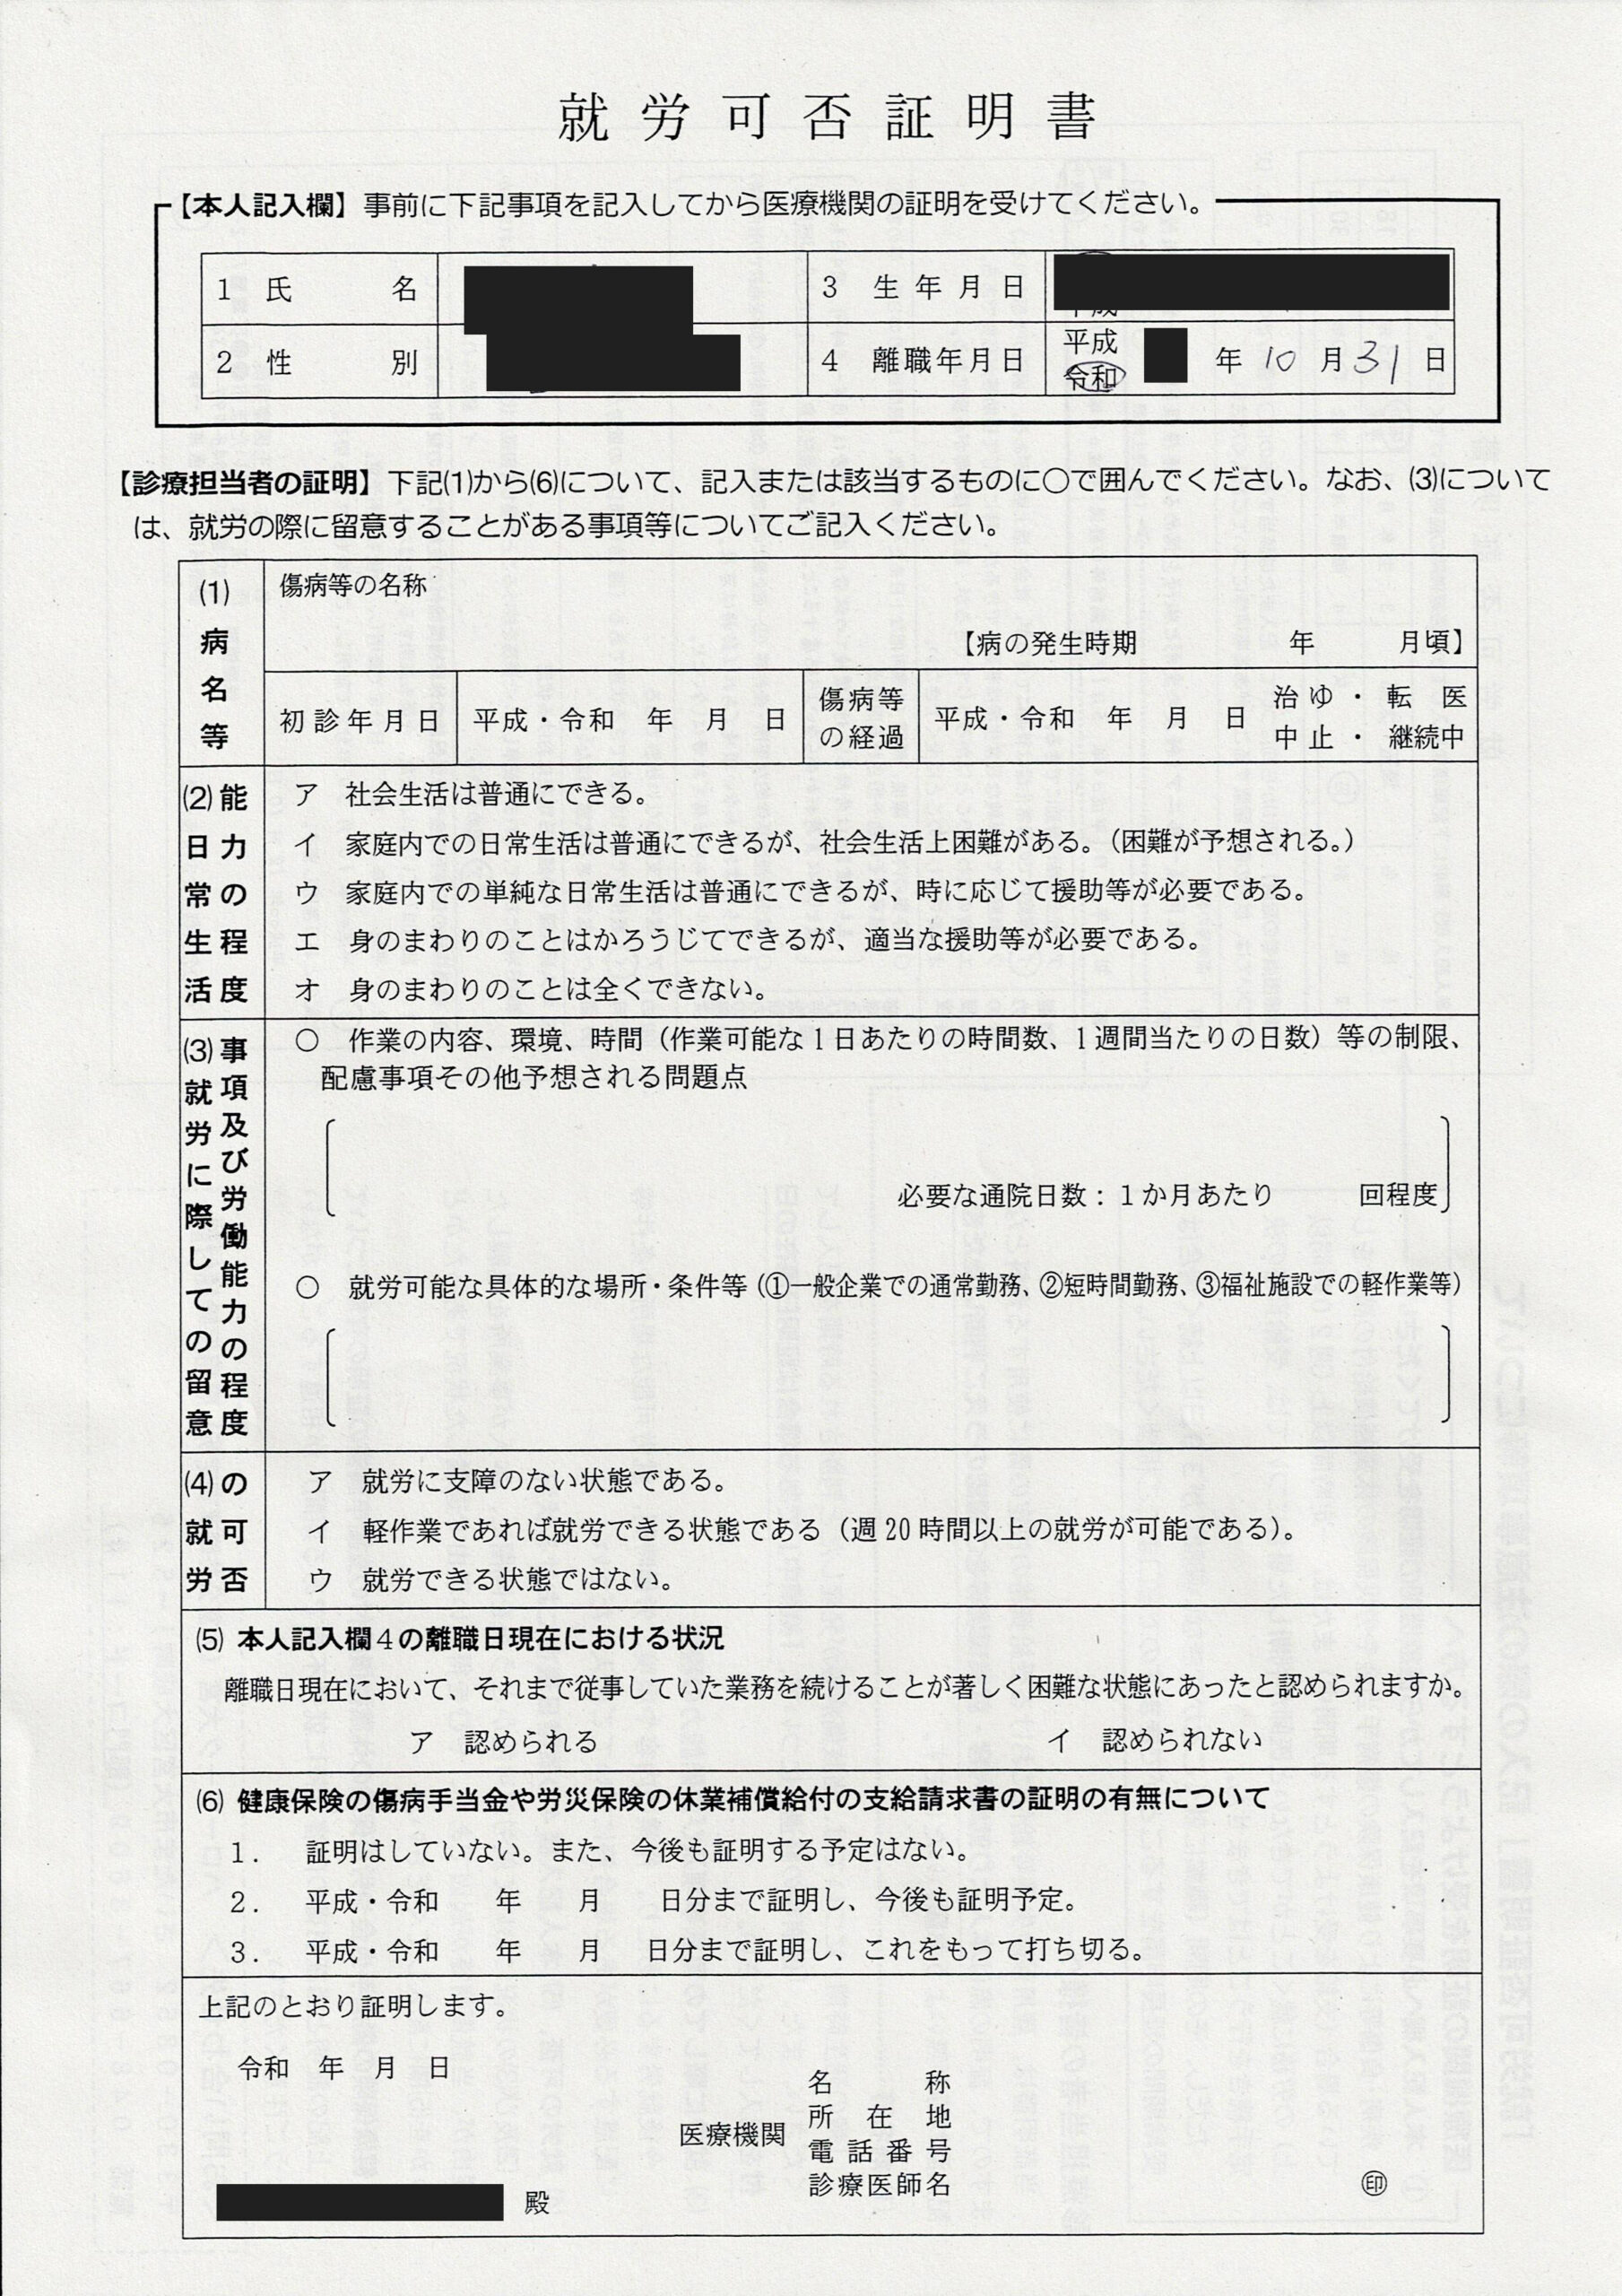 就労可否証明書
【本人記入欄】事前に下記事項を記入してから医療機関の証明を受けてください。
1 氏名
3 生年月日
2 性別
4 離職年月日 平成 令和 年 10 月 31 日
【診療担当者の証明】下記(1)から(6)について、記入または該当するものに○で囲んでください。なお、(3)について
は、就労の際に留意することがある事項等についてご記入ください。
(1)病名等
傷病等の名称
【病の発生時期 年 月頃】
初診年月日 平成・令和 年 月 日 傷病等の経過 平成・令和 年 月 日 治ゆ・転医 中止・継続中
(2)日常生活能力の程度
ア 社会生活は普通にできる。
イ 家庭内での日常生活は普通にできるが、社会生活上困難がある。（困難が予想される。）
ウ 家庭内での単純な日常生活は普通にできるが、時に応じて援助等が必要である。
エ 身のまわりのことはかろうじてできるが、適当な援助等が必要である。
オ 身のまわりのことは全くできない。
(3)就労に際しての留意事項及び労働能力の程度
○ 作業の内容、環境、時間（作業可能な1日あたりの時間数、1週間当たりの日数）等の制限、
配慮事項その他予想される問題点
必要な通院日数：1か月あたり 回程度
○ 就労可能な具体的な場所・条件等（①一般企業での通常勤務、②短時間勤務、③福祉施設での軽作業等）
(4)就労の可否
ア 就労に支障のない状態である。
イ 軽作業であれば就労できる状態である（週20時間以上の就労が可能である）。
ウ 就労できる状態ではない。
(5) 本人記入欄4の離職日現在における状況
離職日現在において、それまで従事していた業務を続けることが著しく困難な状態にあったと認められますか。
ア 認められる イ 認められない
(6) 健康保険の傷病手当金や労災保険の休業補償給付の支給請求書の証明の有無について
1. 証明はしていない。また、今後も証明する予定はない。
2. 平成・令和 年 月 日分まで証明し、今後も証明予定。
3. 平成・令和 年 月 日分まで証明し、これをもって打ち切る。
上記のとおり証明します。
令和 年 月 日
医療機関
名称
所在地
電話番号
診療医師名
㊞
殿